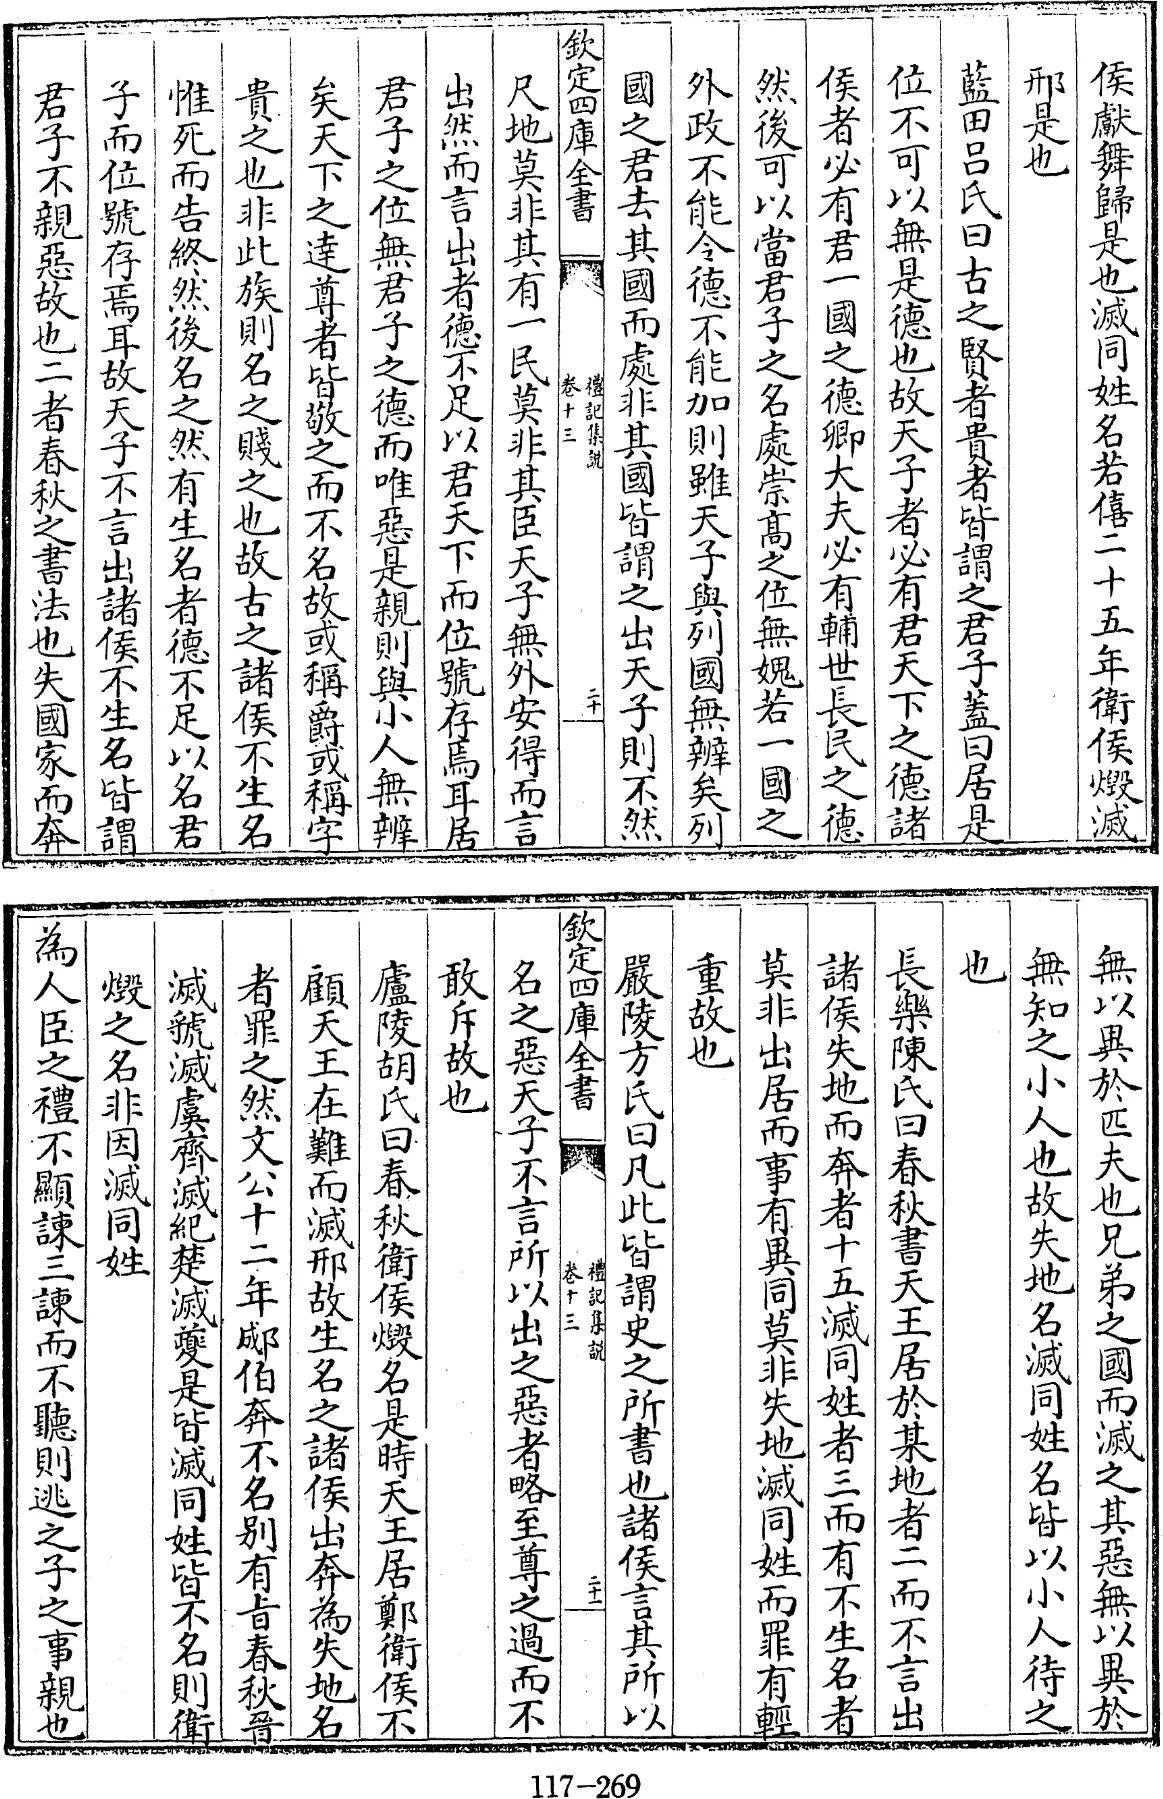 侯獻舞歸是也滅同姓名若僖二十五年衛侯燬滅
邢是也
藍田呂氏曰古之賢者貴者皆謂之君子蓋曰居是
位不可以無是德也故天子者必有君天下之德諸
侯者必有君一國之德卿大夫必有輔世長民之德
然後可以當君子之名處崇髙之位無媿若一國之
外政不能令德不能加則雖天子與列國無辨矣列
國之君去其國而處非其國皆謂之出天子則不然
欽定四庫全書
禮記集說
卷十三
二十
尺地莫非其有一民莫非其臣天子無外安得而言
出然而言出者德不足以君天下而位號存焉耳居
君子之位無君子之德而唯惡是親則與小人無辨
矣天下之達尊者皆敬之而不名故或稱爵或稱字
貴之也非此族則名之賤之也故古之諸侯不生名
惟死而告終然後名之然有生名者德不足以名君
子而位號存焉耳故天子不言出諸侯不生名皆謂
君子不親惡故也二者春秋之書法也失國家而奔
無以異於匹夫也兄弟之國而滅之其惡無以異於
無知之小人也故失地名滅同姓名皆以小人待之
也
長樂陳氏曰春秋書天王居於某地者二而不言出
諸侯失地而奔者十五滅同姓者三而有不生名者
莫非出居而事有異同莫非失地滅同姓而罪有輕
重故也
嚴陵方氏曰凡此皆謂史之所書也諸侯言其所以
欽定四庫全書
禮記集說
卷十三
二十一
名之惡天子不言所以出之惡者略至尊之過而不
敢斥故也
廬陵胡氏曰春秋衛侯燬名是時天王居鄭衛侯不
顧天王在難而滅邢故生名之諸侯出奔為失地名
者罪之然文公十二年郕伯奔不名别有㫖春秋晉
滅虢滅虞齊滅紀楚滅夔是皆滅同姓皆不名則衛
燬之名非因滅同姓
為人臣之禮不顯諫三諫而不聽則逃之子之事親也
117-269